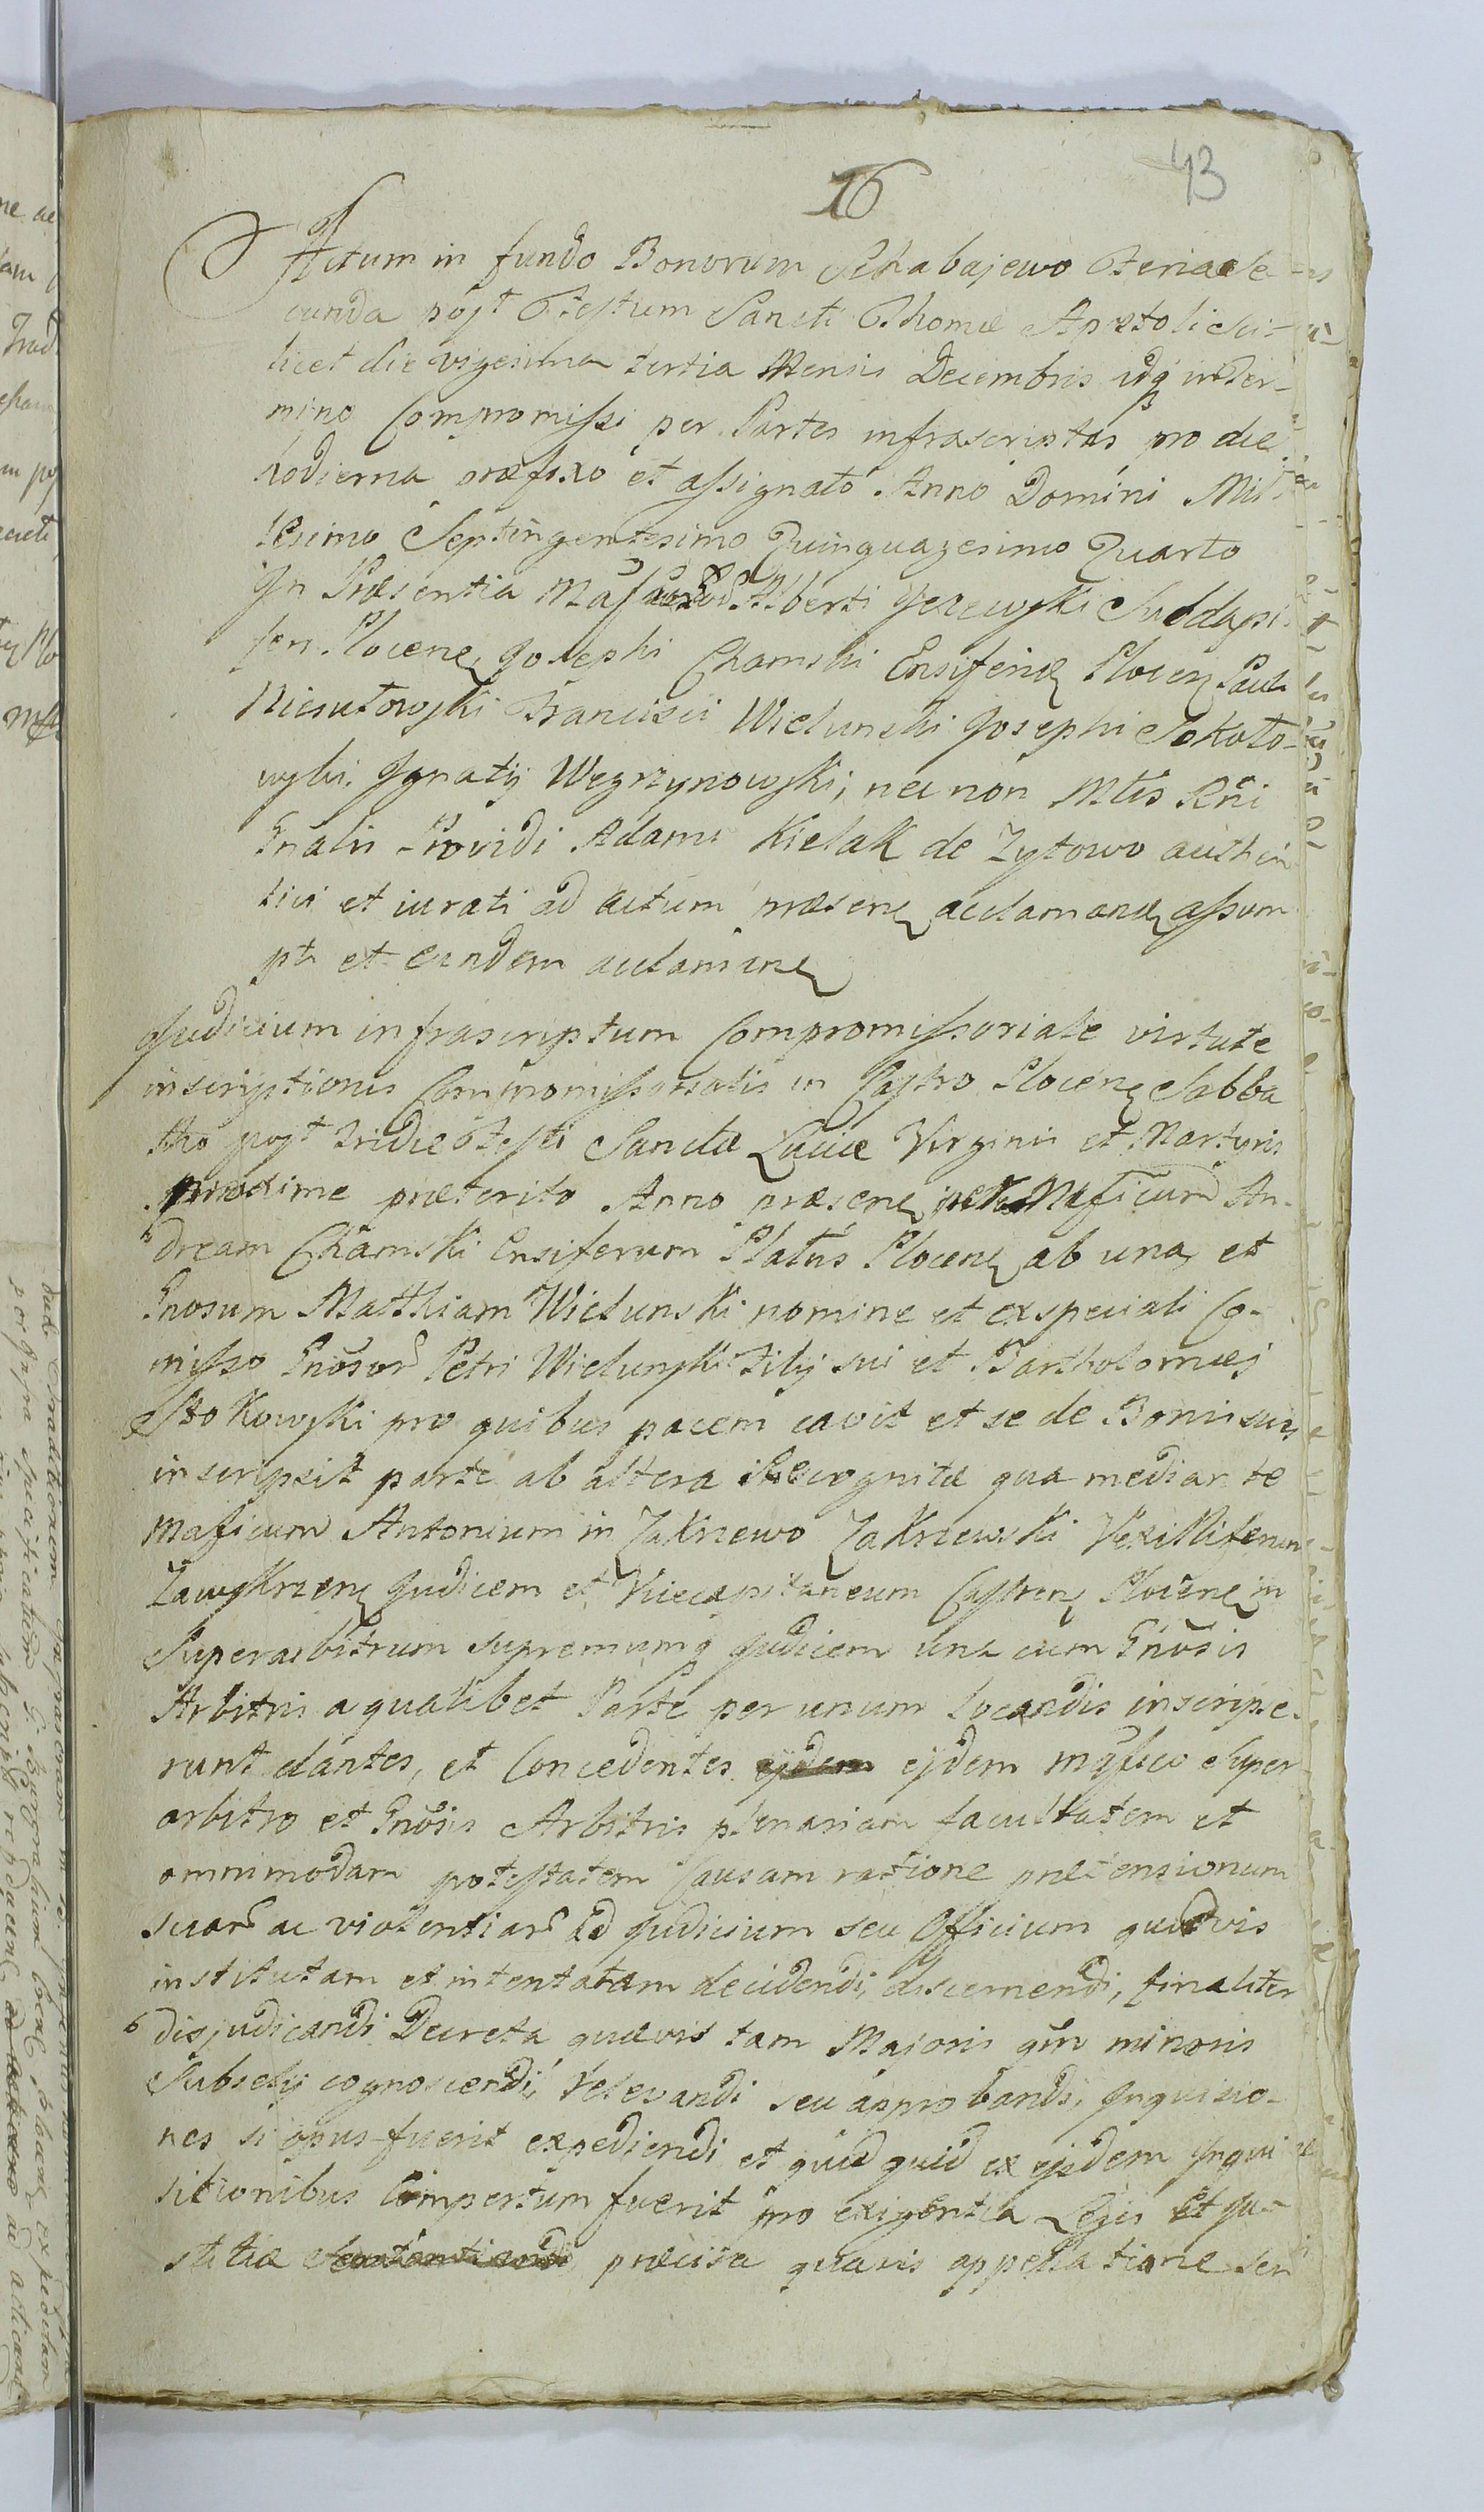 43
16
Actum in fundo Bonorum Schabajewo Feria Se-
cunda post Festum Sancti Thomæ Apostoli Sci-
licet die vigesima tertia Mensis Decembris idq in Ter-
mino Compromissi per Partes infrascriptas pro die
hodierna præfixo et assignato Anno Domini Mil-
lesimo Septingentesimo Quinquagesimo Quarto
In Præsentia Alberti Jezewski Subdapi-
feri Plocen Josephi Chamski Ensiferid Plocen Pauli
Niesułowski Francisci Wielunski Josephi Sokoło-
wski Ignatij Węgrzynowski; nec non Mtis Rni
Gnalis Providi Adami Kielak de Zytowo authen
tici et iurati ad actum præsen acclamand assum
pti et eundem acclaman
Judicium infrascriptum Compromissoriale virtute
inscriptionis Compromissorialis in Castro Plocen Sabba
tho post tridie Festi Sanctæ Luciæ Virginis et Martyris
proxime præterito Anno præsen inter Mafficum An-
dream Chamski Ensiferum Platus Plocen ab una et
Gnosum Matthiam Wielunski nomine et ex speciali Co-
misso Gnosor Petri Wielunski Filij sui et Bartholomæj
Stokowski pro quibus pacem cavit et se de Bonis suis
inscripsit parte ab altera Recognita qua mediante
Maficum Antonium in Zakrzewo Zakrzewski Vexilliferum
Zawskrzen Judicem et Vicecapitaneum Castren Plocen in
Superarbitrum supremumq Judicem una cum Gnosis
Arbitris a qualibet Parte per unum locandis inscripse-
runt dantes, et Concedentes ejdem ejdem Mgfico Super
arbitro et Gnosis Arbitris plenariam facultatem et
omnimodam potestatem Causam ratione prætensionum
suar ac violentiar ad Judicium seu Officium quodvis
institutam et intentatam decidendi, discernendi, finaliter
disjudicandi Decreta quævis tam Majoris qm minoris
Subselij cognoscendi, relevandi seu approbandi, Inquisitio-
nes si opus fuerit expediendi et quid quid ex ejsdem Inqui
sitionibus Compertum fuerit pro exigentia Legis et Ju-
stitiæ præcisa quavis appellatione sen